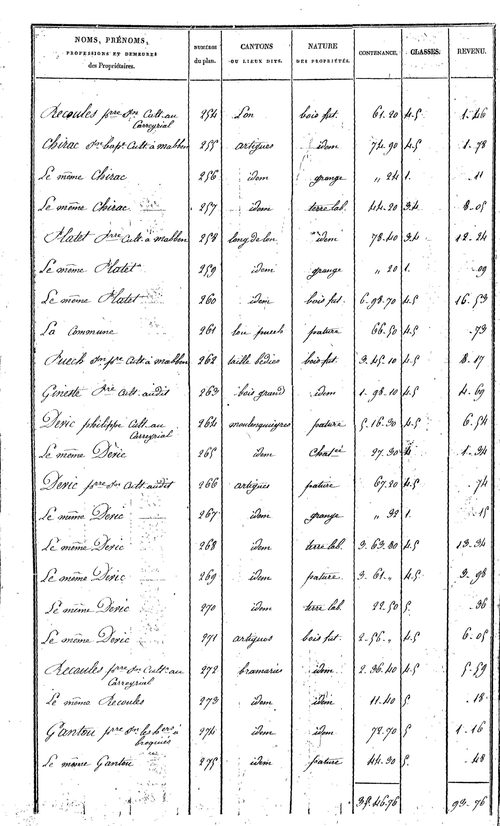 NOMS, PRÉNOMS, PROFESSIONS ET DEMEURES des Propriétaires. NUMÉROS du plan. CANTONS OU LIEUX DITS. NATURE DES PROPRIÉTÉS. CONTENANCE. CLASSES. REVENU.
Recoules pre Jn Cult. au Carreyrial 254 Lon bois fut. 61.20 4.5 1.46
Chirac Jn bapt Cult. à mabben 255 artigues idem 74.90 4.5 1.78
Le même Chirac 256 idem grange " 24 1. .11
Le même Chirac 257 idem terre lab. 44.20 3.4 8.05
Platet pre Cult. à mabben 258 long de lon idem 78.40 3.4 12.24
Le même Platet 259 idem grange " 20 1. .09
Le même Platet 260 idem bois fut. 6.98.70 4.5 16.53
La Commune 261 lou puech pature 66.50 4.5 .73
Puech Jn pre Cult. à mabben 262 taille bédios bois fut. 3.45.10 4.5 8.17
Gineste pre Cult. audit 263 bois grand idem 1.98.10 4.5 4.69
Deric philippe Cult. au Carreyrial 264 moulenquieyres pature 5.16.30 4.5 6.54
Le même Deric 265 idem 27.30 4 1.34
Deric pre Jn Cult. audit 266 artigues pature 67.20 4.5 .74
Le même Deric 267 idem grange " 32 1. .15
Le même Deric 268 idem terre lab. 3.63.80 4.5 13.34
Le même Deric 269 idem pature 3.61." 4.5 3.98
Le même Deric 270 idem terre lab. 22.50 5. .36
Le même Deric 271 artigues bois fut. 2.56." 4.5 6.05
Recoules pre Jn Cult. au Carreyrial 272 bramaries idem 2.36.40 4.5 5.59
Le même Recoules 273 idem idem 11.40 5 .18
Gantou pre Jn les hers à broquiès 274 idem idem 72.70 5 1.16
Le même Gantou 275 idem pature 44.30 5 .48
35.46.96 93.76